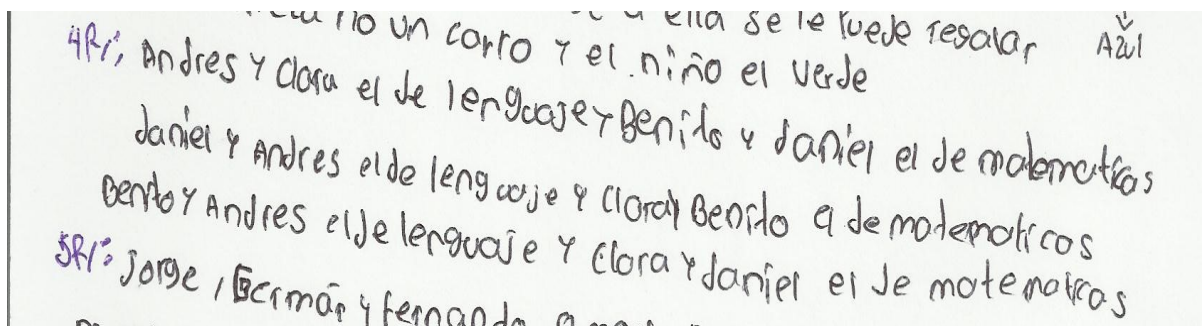 no un carro y el niño el verde
a ella se le puede regalar Azul
4R/: Andres y Clara el de lenguaje y Benito y daniel el de matematicas
daniel y Andres el de lenguaje y Clara y Benito el de matematicos
Benito y Andres el de lenguaje y Clara y daniel el de matematicas
5R/: Jorge, Germán y fernando